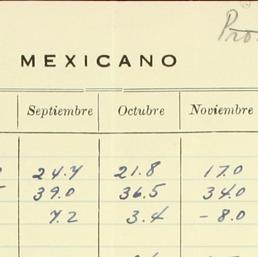 MEXICANO
Septiembre Octubre Noviembre
24.7 21.8 17.0
39.0 36.5 34.0
7.2 3.4 -8.0